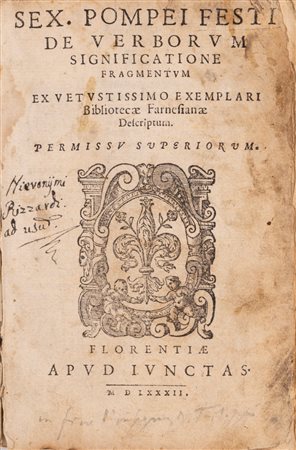 SEX. POMPEI FESTI
DE VERBORVM
SIGNIFICATIONE
FRAGMENTVM
EX VETVSTISSIMO EXEMPLARI
Bibliotecæ Farnesianæ
Descriptum.
PERMISSV SVPERIORVM.
Hieronymi
Rizzardi
ad usu
FLORENTIÆ
APVD IVNCTAS.
M D LXXXII.